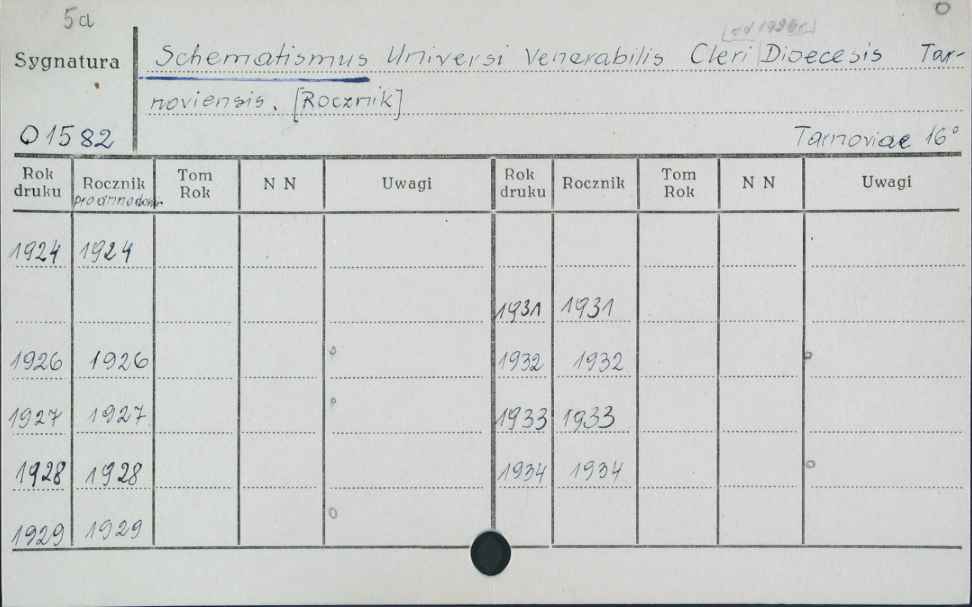 5a
Sygnatura
Schematismus Universi Venerabilis Cleri Dioecesis Tar-
noviensis. [Rocznik]
O 1582
Tarnoviae 16°
Rok druku Rocznik Tom Rok N N Uwagi Rok druku Rocznik Tom Rok N N Uwagi
1924 1924
1931 1931
1926 1926 1932 1932
1927 1927 1933 1933
1928 1928 1934 1934
1929 1929